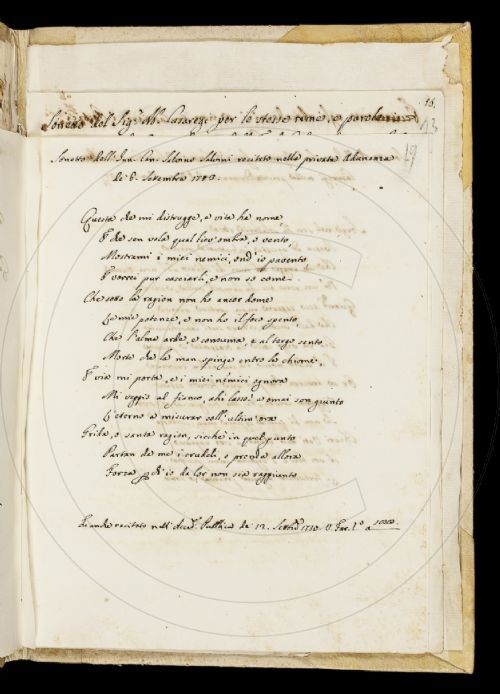 16.
Sonetto del Sig.r Ab. Casaregi per le stesse rime, e parole
13
19
Sonetto dell'Ill. Can. Salvino Salvini recitato nella privata Adunanza
de' 6. Settembre
Questa che mi distrugge, e vita ha nome
E che sen vola qual liev'ombra, e vento
Mostrami i miei nemici, ond'io pavento
E vorrei pur cacciarli, e non so come
Che sotto la ragion non ho ancor dome
Le mie potenze, e non ho il foco spento,
Che l'alma arde, e consuma, e al tergo sento
Morte che la man spinge entro le chiome,
E via mi porta, e i miei nemici ognora
Mi veggio al fianco, ahi lasso! e omai son giunto
L'eterno a misurar coll'ultim'ora
Grida, o santa ragion, sicchè in quel punto
Partan da me i crudeli, e prenda allora
Forza ch'io da lor non sia raggiunto
Fu anche recitato nell'Accad. Pubblica de' 12. Settbre 1710.